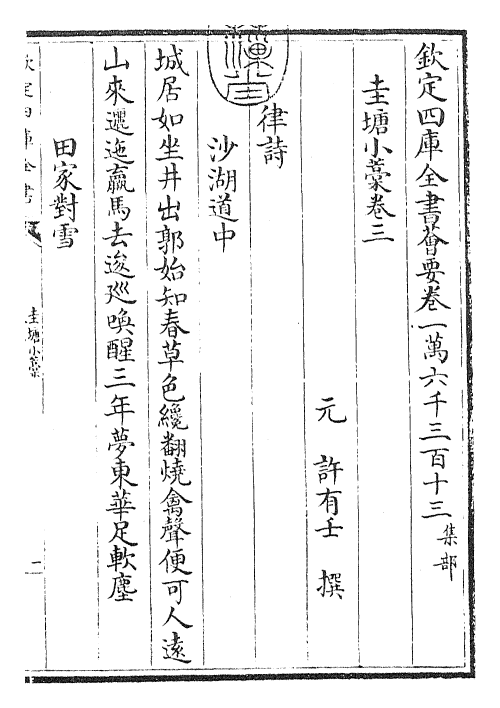 欽定四庫全書薈要卷一萬六千三百十三 集部
圭塘小藁卷三
元 許有壬 撰
律詩
沙湖道中
城居如坐井出郭始知春草色纔翻燒禽聲便可人遠
山來邐迤羸馬去逡廵喚醒三年夢東華足軟塵
田家對雪
欽定四庫全書
圭塘小藁